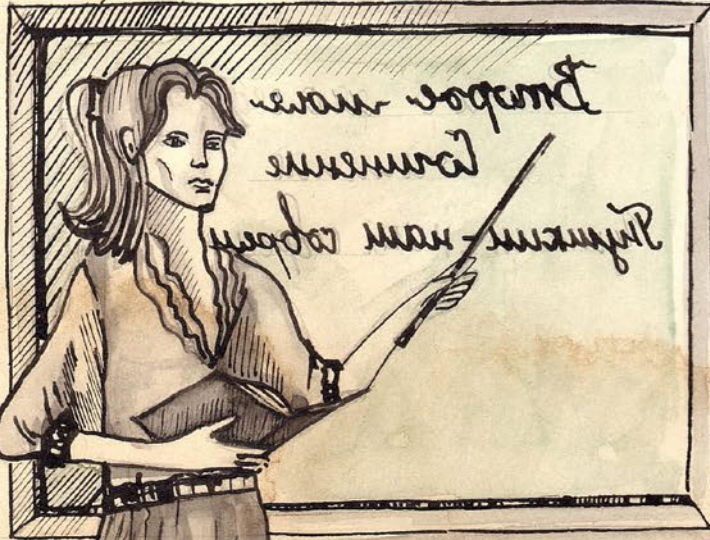 Второе
Сочинение
Пушкин - наш соврем